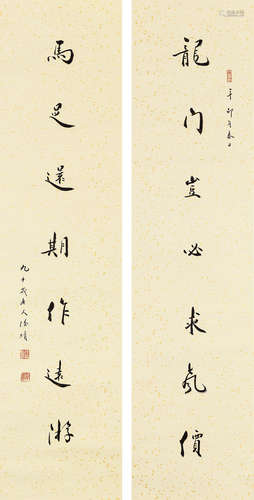 龍門豈必求氣價
辛卯年春日
馬足還期作遠游
九十歲老人